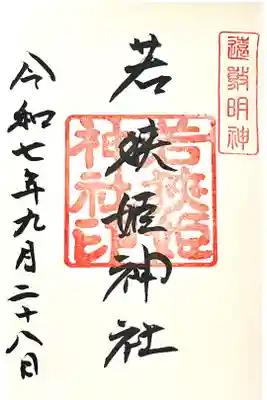 遠敷明神
若狹姫神社
若狹姫
神社印
令和七年九月二十八日